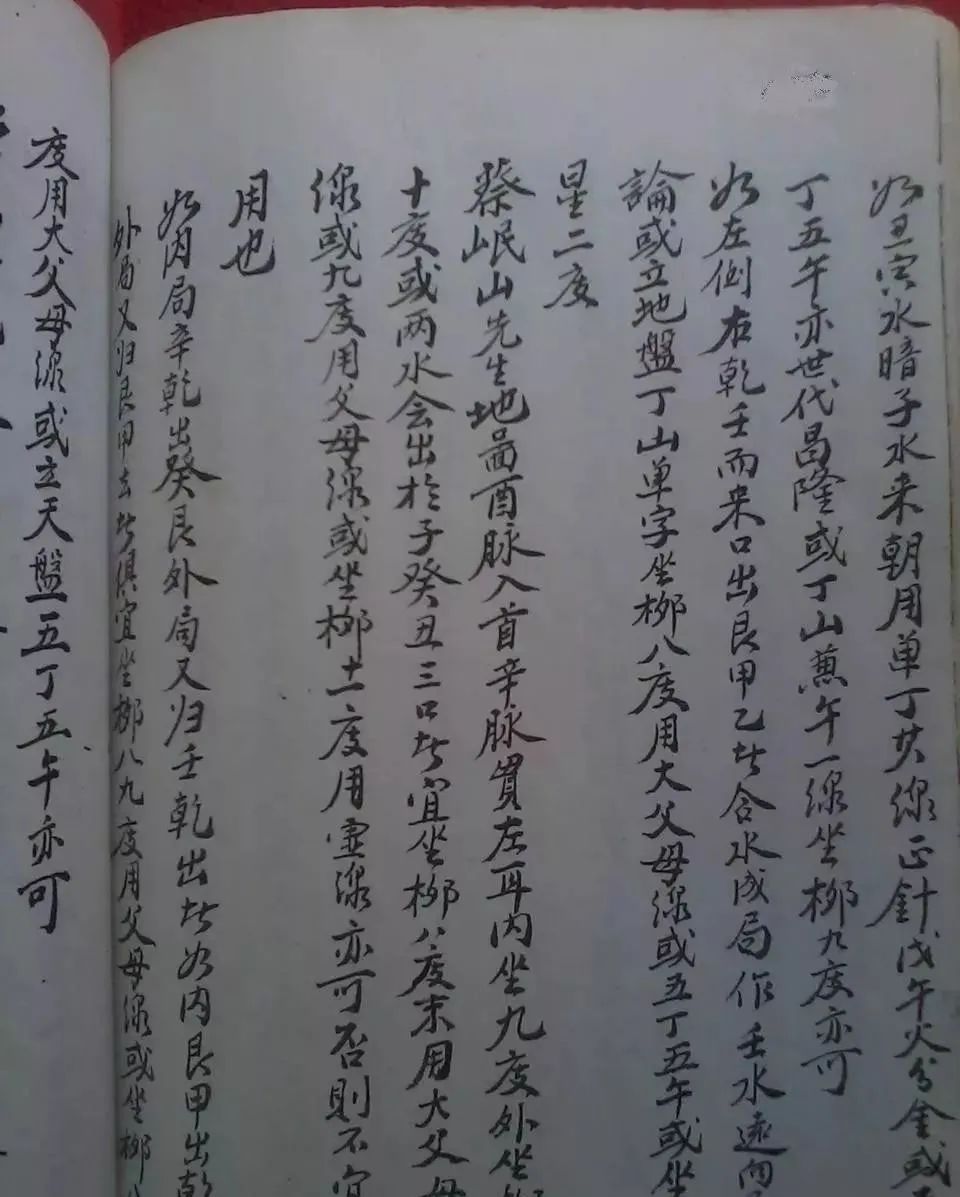 如丑宫水暗子水来朝用单丁共線正針戊午火分金或
丁五午亦世代昌隆或丁山兼午一線坐柳九度亦可
如左倒右乾壬而来口出艮甲乙att合水成局作壬水遠
論或立地盤丁山单字坐柳八度用大父母線或五丁五午或坐
星二度
蔡岷山先生地啚酉脉入首辛脉貫左耳内坐九度外坐
十度或两水会出於子癸丑三口宜坐柳八度末用大父母
線或九度用父母線或坐柳十一度用虚線亦可否則不宜
用也
如内局辛乾出癸艮外局又归壬乾出如内艮甲出乾
外局又归艮甲去俱宜坐柳八九度用父母線或坐柳
度用大父母線或立天盤五丁五午亦可